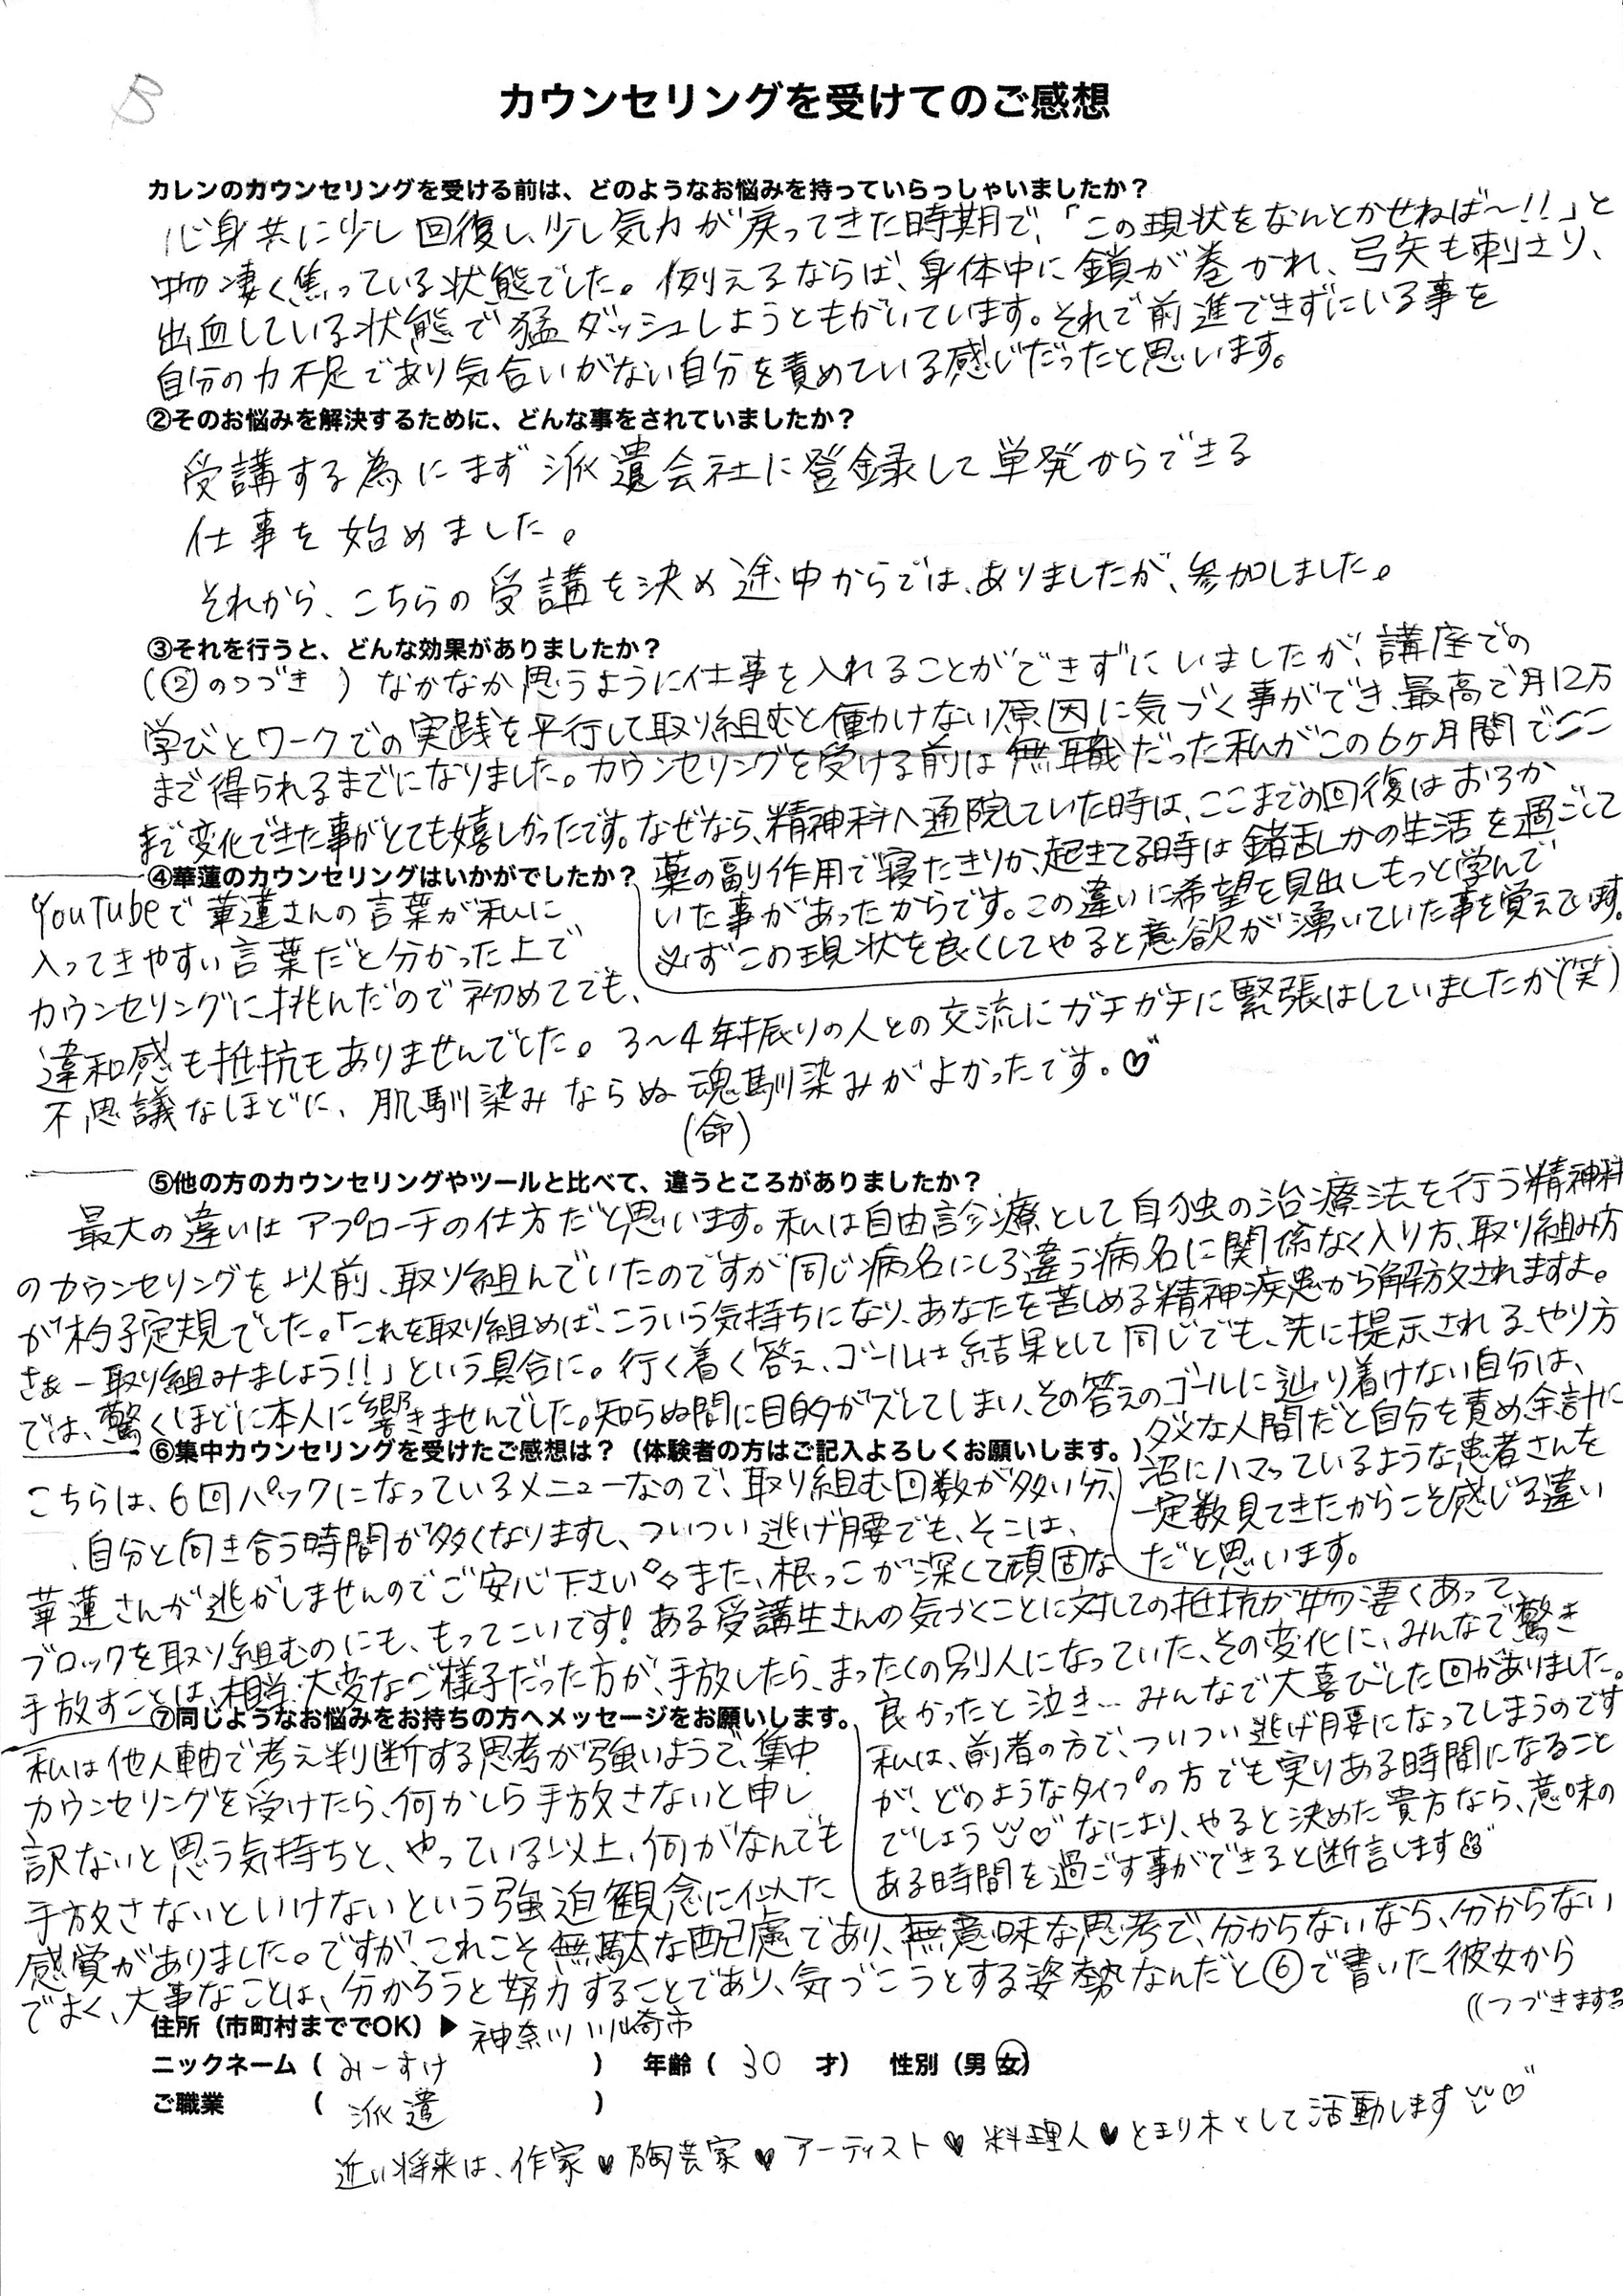 カウンセリングを受けてのご感想
カレンのカウンセリングを受ける前は、どのようなお悩みを持っていらっしゃいましたか？
心身共に少し回復し、少し気力が戻ってきた時期で、「この現状をなんとかせねば〜!!」と
物凄く焦っている状態でした。例えるならば、身体中に鎖が巻かれ、弓矢も刺さり、
出血している状態で猛ダッシュしようともがいています。それで前進できずにいる事を
自分の力不足であり気合いがない自分を責めている感じだったと思います。
②そのお悩みを解決するために、どんな事をされていましたか？
受講する為にまず派遣会社に登録して単発からできる
仕事を始めました。
それから、こちらの受講を決め途中からでは、ありましたが、参加しました。
③それを行うと、どんな効果がありましたか？
(②のつづき) なかなか思うように仕事を入れることができずにいましたが、講座での
学びとワークでの実践を平行して取り組むと働けない原因に気づく事ができ、最高で月12万
まで得られるまでになりました。カウンセリングを受ける前は無職だった私がこの6ヶ月間でここ
まで変化できた事がとても嬉しかったです。なぜなら、精神科へ通院していた時は、ここまでの回復はおろか
薬の副作用で寝たきりか、起きてる時は錯乱しかの生活を過ごして
いた事があったからです。この違いに希望を見出しもっと学んで
必ずこの現状を良くしてやると意欲が湧いていた事を覚えています。
④華蓮のカウンセリングはいかがでしたか？
YouTubeで華蓮さんの言葉が私に
入ってきやすい言葉だと分かった上で
カウンセリングに挑んだので初めてでも、
違和感も抵抗もありませんでした。3〜4年振りの人との交流にガチガチに緊張はしていましたが(笑)
不思議なほどに、肌馴染みならぬ魂馴染みがよかったです。♡
(命)
⑤他の方のカウンセリングやツールと比べて、違うところがありましたか？
最大の違いはアプローチの仕方だと思います。私は自由診療として自分独の治療法を行う精神科
のカウンセリングを以前、取り組んでいたのですが同じ病名にしろ違う病名に関係なく入り方、取り組み方
が杓子定規でした。「これを取り組めば、こういう気持ちになり、あなたを苦しめる精神疾患から解放されますよ。
さぁー取り組みましょう!!」という具合に。行く着く答え、ゴールは結果として同じでも、先に提示される、やり方
では、驚くほどに本人に響きませんでした。知らぬ間に目的がズレてしまい、その答えのゴールに辿り着けない自分は、
ダメな人間だと自分を責め余計に
沼にハマっているような患者さんを
一定数見てきたからこそ感じる違い
だと思います。
⑥集中カウンセリングを受けたご感想は？（体験者の方はご記入よろしくお願いします。）
こちらは、6回パックになっているメニューなので、取り組む回数が多い分、
自分と向き合う時間が多くなりますし、ついつい逃げ腰でも、そこは、
華蓮さんが逃がしませんのでご安心下さい また、根っこが深くて頑固な
ブロックを取り組むのにも、もってこいです! ある受講生さんの気づくことに対しての抵抗が物凄くあって、
手放すことは、相当、大変なご様子だった方が、手放したら、まったくの別人になっていた、その変化に、みんなで驚き
良かったと泣き… みんなで大喜びした回がありました。
私は、前者の方で、ついつい逃げ腰になってしまうのです
が、どのようなタイプの方でも実りある時間になること
でしょう♡ なにより、やると決めた貴方なら、意味の
ある時間を過ごす事ができると断言します
⑦同じようなお悩みをお持ちの方へメッセージをお願いします。
私は他人軸で考え判断する思考が強いようで、集中
カウンセリングを受けたら、何かしら手放さないと申し
訳ないと思う気持ちと、やっている以上、何がなんでも
手放さないといけないという強迫観念に似た
感覚がありました。ですが、これこそ無駄な配慮であり、無意味な思考で、分からないなら、分からない
でよく、大事なことは、分かろうと努力することであり、気づこうとする姿勢なんだと⑥で書いた彼女から
((つづきます
住所（市町村まででOK）▶ 神奈川 川崎市
ニックネーム（ みーすけ ） 年齢（ 30 才） 性別（男 女）
ご職業 （ 派遣 ）
近い将来は、作家♥陶芸家♥アーティスト♥料理人♥とまり木として活動します♡